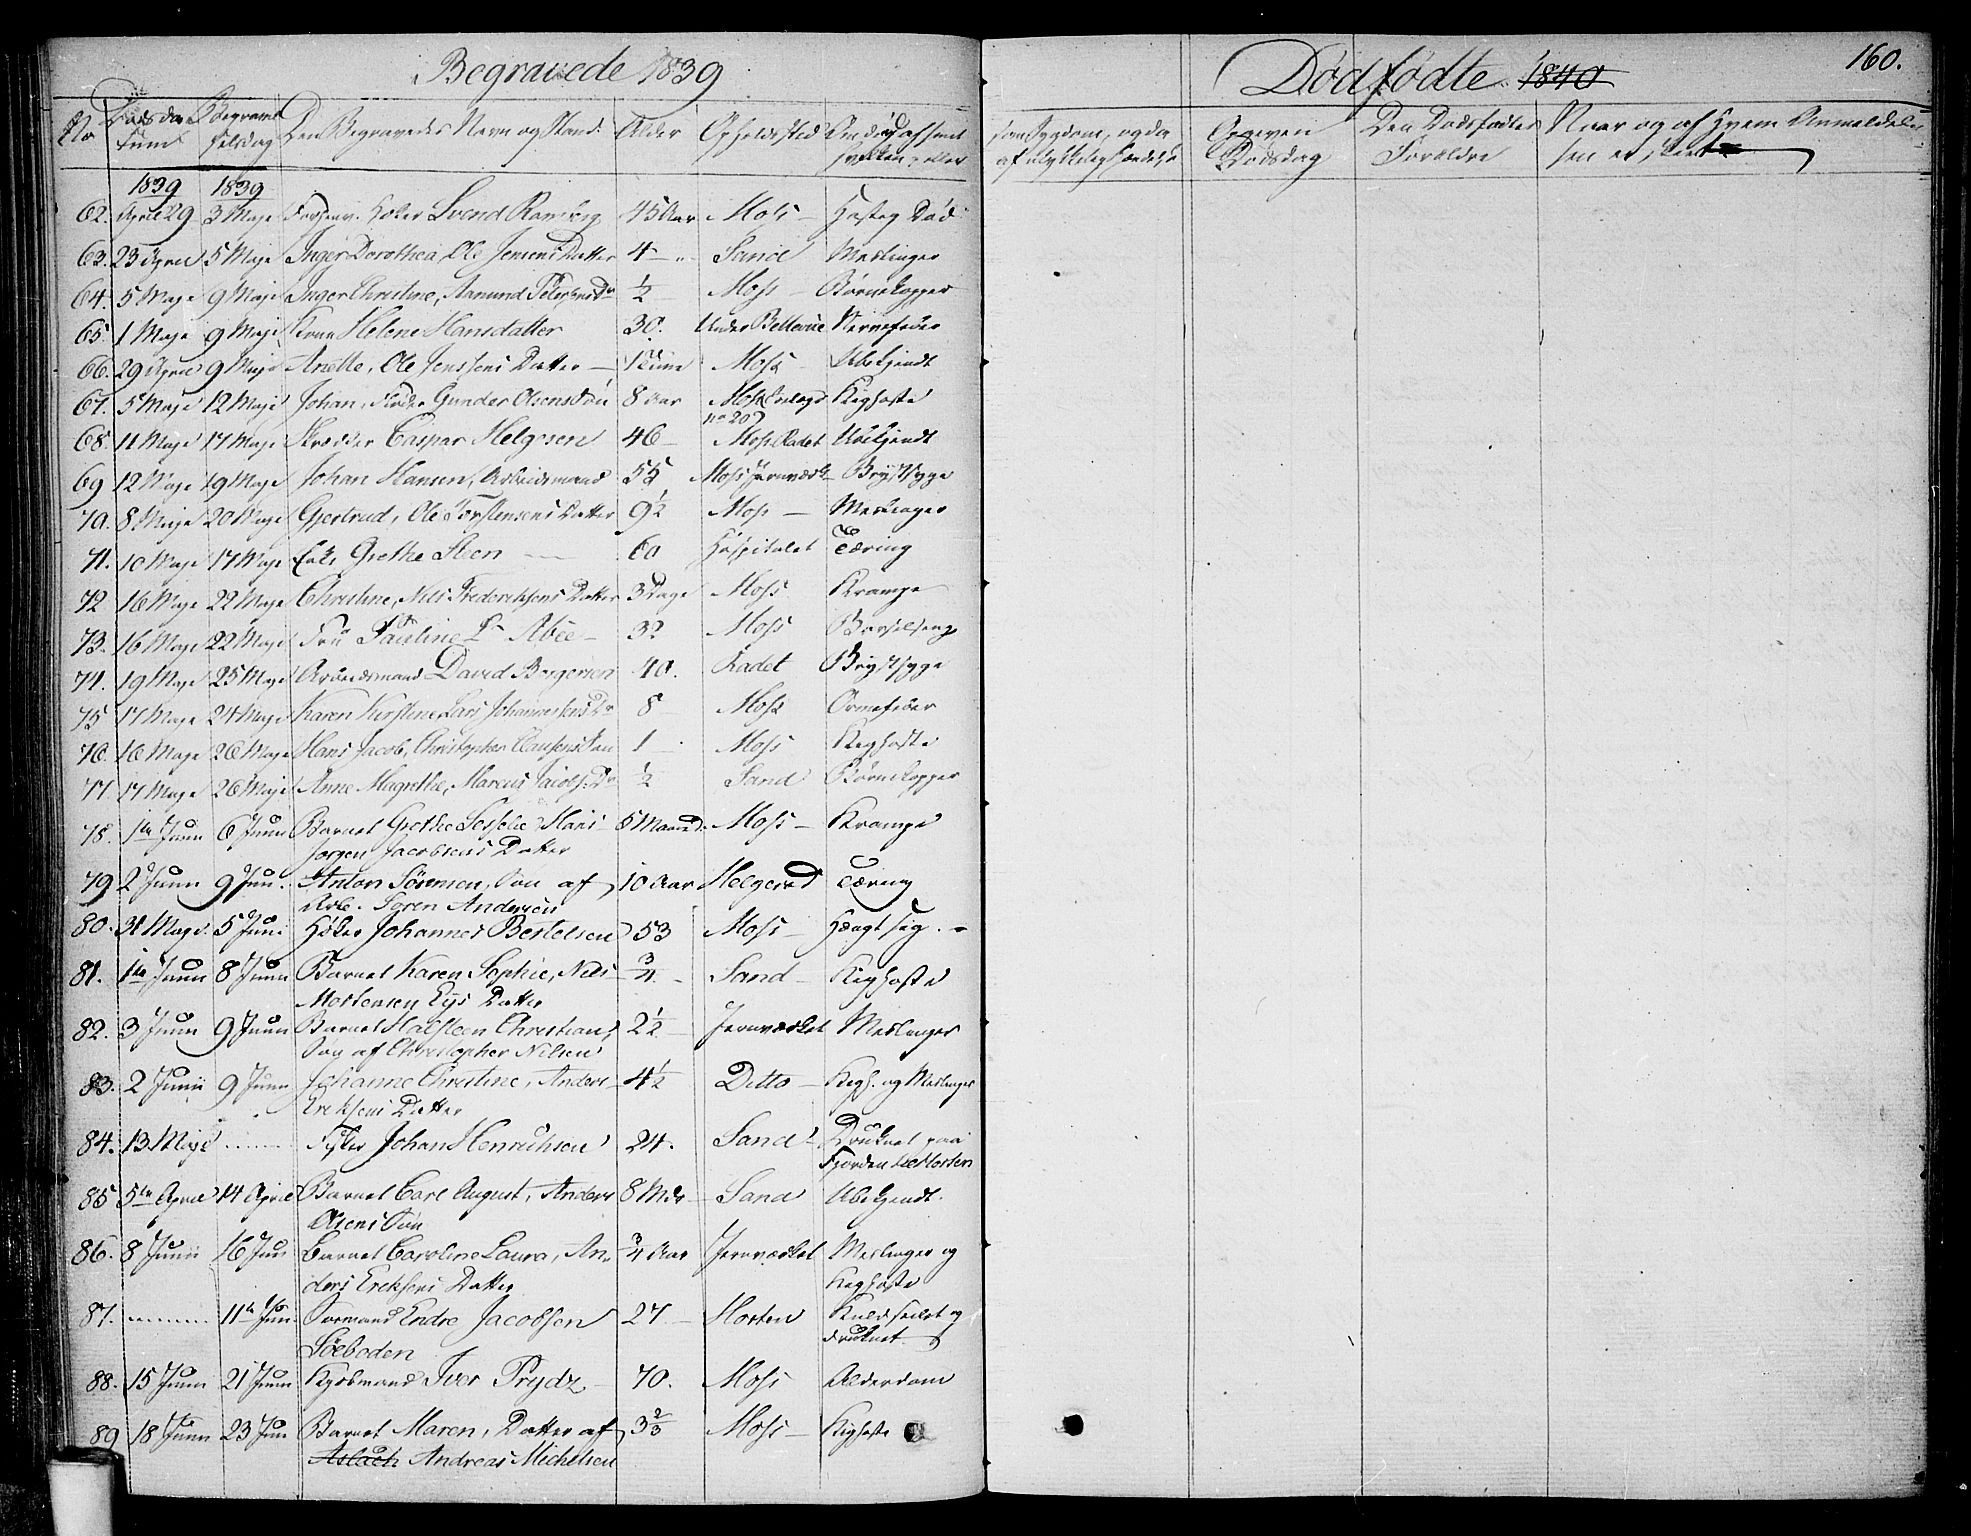 Begravede 1839
No Dødsda- Begravel- Den Begravedes Navn og Stand. Alder Opholdssted
tum selsdag
1839 1839
62. April 29 3 Maje Svend Ramberg 45 Aar Moss – Hastig Død
63. 23 April 5 Maje Inger Dorothea, Ole Jensens Datter 4 – Sand Meslinger
64. 5 Maje 9 Maje Inger Christine, Aamund Petersens Dr ½ Moss – Børnekopper
65. 1 Maje 9 Maje Kone Helene Hansdatter 30. Under Bellevue Nervefeber
66. 29 April 9 Maje Anette, Ole Jenssens Datter – 1 Time Moss Ubekjendt
67. 5 Maje 12 Maje Johan, Gunder Olsens Søn 8 Aar Moss Kighoste
no 207
68. 11 Maje 17 Maje Skrædder Caspar Helgesen 46 – Moss Ubekjendt
69 12 Maje 19 Maje Johan Hansen, Arbeidsmand 55 Moss Jernværk – Brystsyge
70. 8 Maje 20 Maje Gjertrud, Ole Torstensens Datter 9½ Moss – Meslinger
71. 10 Maje 17 Maje Enke Grethe Steen – 60 Hospitalet Tæring
72 16 Maje 22 Maje Christine, Nils Frederiksens Datter 3 Dage Moss Krampe
73. 16 Maje 22 Maje Fru Pauline L'Abée – 32 Moss Barselseng
74. 19 Maje 25 Maje Arbeidsmand David Borgersen 40. Brystsyge
75 17 Maje 24 Maje Karen Kirstine, Lars Johannesens Dr 8 Moss Ormefeber
76. 16 Maje 26 Maje Hans Jacob, Christopher Clausens Søn 1 – Moss Kighoste
77. 17 Maje 26 Maje Anne Magrethe, Marcus Jacobs. Dr ½ Sand Børnekopper
78. 1te Junii 6 Junii Barnet Grethe Hans 5 Maand. Moss – Krampe
Jørgen Jacobsens Datter
79 2 Junii 9 Juni. Anton Sørensen, Søn af 10 Aar Helgerød Tæring
Arb. Søren Andersen
80. 31 Maje. 5 Juni Høker Johannes Bertelsen 53 Moss – Hængt sig. –
81. 1te Junii 8 Junii Barnet Karen Sophie, Nils ¾. – Sand – Kighoste
Mortensen Eys Datter
82. 3 Junii 9 Junii Barnet Halsteen Christian, 2½ – Jernværket Meslinger
Søn af Christopher Nilsen
83. 2 Junii 9 Junii Johanne Christine, Anders 4½ Ditto – Kigh. og Meslinger
Ereksens Datter
84. 13 Maje ...... Johan Henrichsen 24. Sand – Druknet paa
Fjorden
85 5te April 14 April Barnet Carl August, Anders 8 Mdr – Sand Ubekjendt.
Olsens Søn
86. 8 Junii 16 Juni Barnet Caroline Laura, An- ¾ Aar Jernværket Meslinger og
ders Ereksens Datter Kighoste
87. ......... 11te Juni Endre Jacobsen 27. – Horten Kuldseilet og
Søeboden druknet
88. 15 Junii 21 Junii Kjøbmand Iver Prydz – 70. Moss Alderdom
89 18 Junii 23 Juni Barnet Maren, Datter af 3⅔ Moss – Kighoste
Aslach Andreas Michelsen
Dødfødte 1840
160.
som Sygdom, og da Opgiven Den Dødfødtes Naar og af Hvem Anmeldel-
af ulykkelig Hændelse Dødsdag Forældre sen er skeet